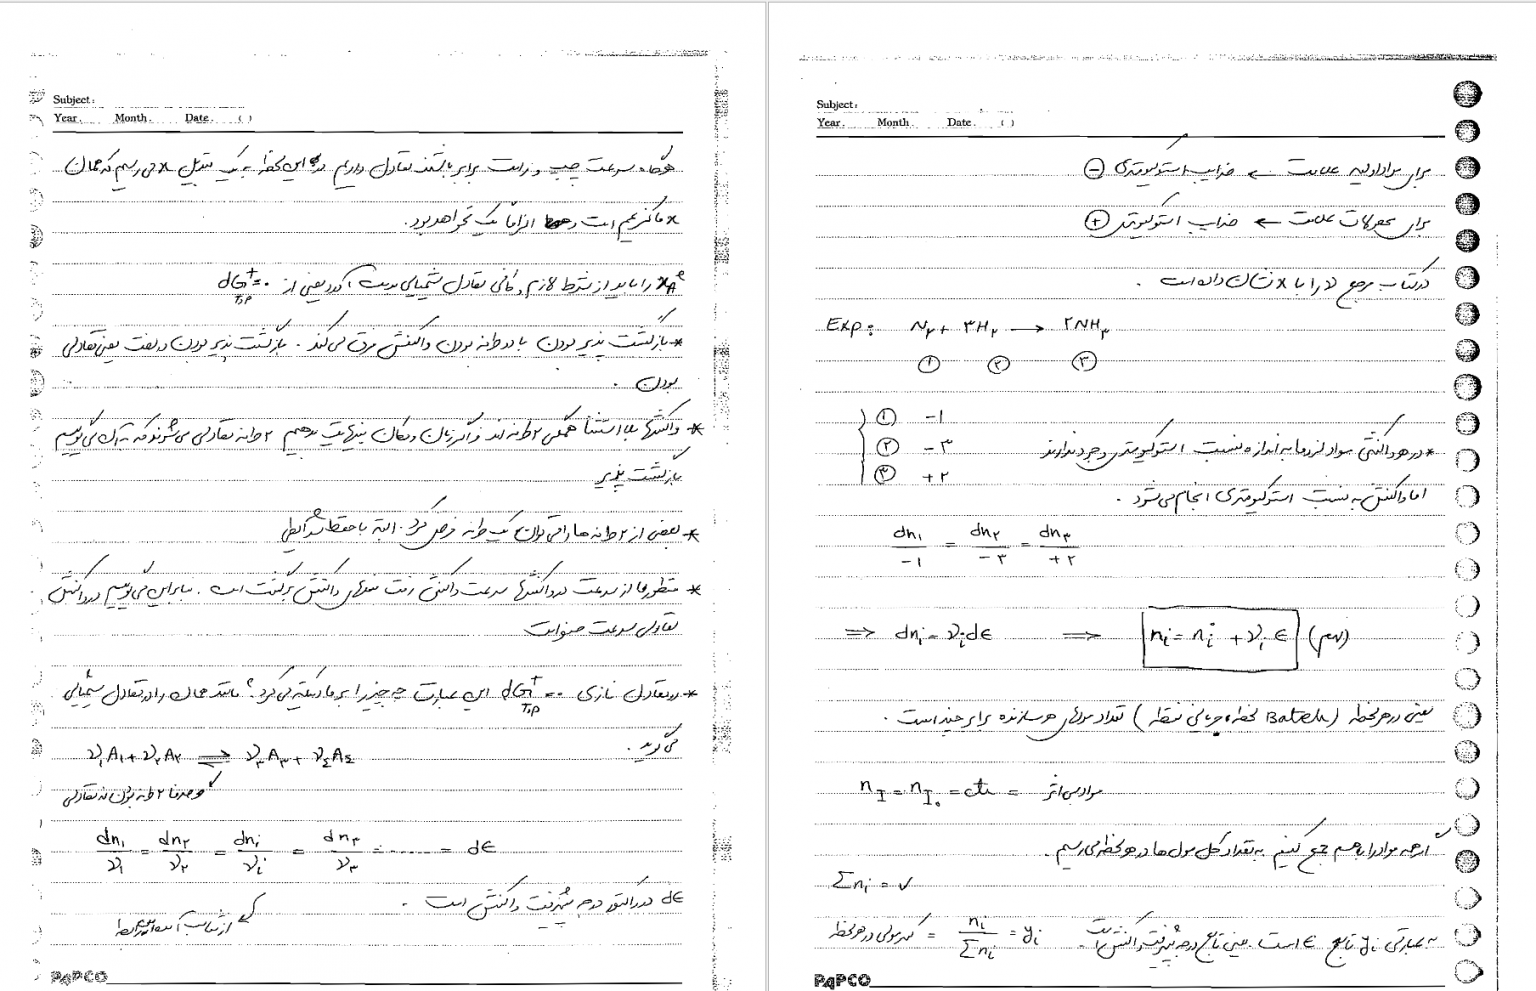 Subject:
Year. Month. Date. ( )
هرگاه سرعت چپ و راست برابر باشند تعادل داریم در این لحظه به یک تبدیل x می رسیم که همان
x ماکزیمم است و الزاماً یک نخواهد بود.
xAe را باید از شرط لازم و کافی تعادل شیمیایی بدست آورد یعنی از dGt T,P = 0
* بازگشت پذیر بودن با دو طرفه بودن واکنش فرق می کند. بازگشت پذیر بودن یعنی تعادلی
بودن.
* واکنشها بلا استثنا همگی ۲ طرفه اند و اگر زمان و مکان بینهایت بدهیم ۲ طرفه تعادلی می شوند که به آن می گوییم
بازگشت پذیر
* بعضی از ۲ طرفه ها را می توان یک طرفه فرض کرد. البته با حفظ شرایط
* منظور ما از سرعت در واکنشها سرعت واکنش رفت منهای واکنش برگشت است. بنابراین می گوییم در واکنش
تعادلی سرعت صفر است
* در تعادل فازی dGt T,P = 0 این عبارت چه چیز را برما دیکته می کرد؟ مانند همان را در تعادل شیمیایی
می گوید.
ν₁A₁ + ν₂A₂ ⇌ ν₃A₃ + ν₄A₄
صرفا ۲ طرفه بودن نه تعادلی
dn₁/ν₁ = dn₂/ν₂ = dni/νi = dn₃/ν₃ = ...... = dε
dε در راکتور درجه پیشرفت واکنش است.
PAPCO
Subject:
Year. Month. Date. ( )
برای مواد اولیه علامت ← ضرایب استوکیومتری ⊖
برای محصولات علامت ← ضرایب استوکیومتری ⊕
در کتاب مرجع ν را با x نشان داده است.
Exp: N₂ + ۳H₂ → ۲NH₃
① ② ③
① -۱
② -۳
③ +۲
* در هر واکنشی مواد لزوما به اندازه نسبت استوکیومتری وجود ندارند
اما واکنش به نسبت استوکیومتری انجام می شود.
dn₁/-۱ = dn₂/-۳ = dn₃/+۲
⇒ dni = νi dε ⇒ ni = ni° + νi ε
یعنی در هر لحظه (Batch لحظه، جریانی نقطه) تعداد مولهای هر سازنده برابر چند است.
nI = nI₀ = cte = مواد بی اثر
اگر همه مواد را با هم جمع کنیم به تعداد کل مول ها در هر لحظه می رسیم.
Σni = ✓
به عبارتی yi تابع ε است. یعنی تابع درجه پیشرفت واکنش است. ni/Σni = yi = کسر مولی در هر لحظه
PAPCO